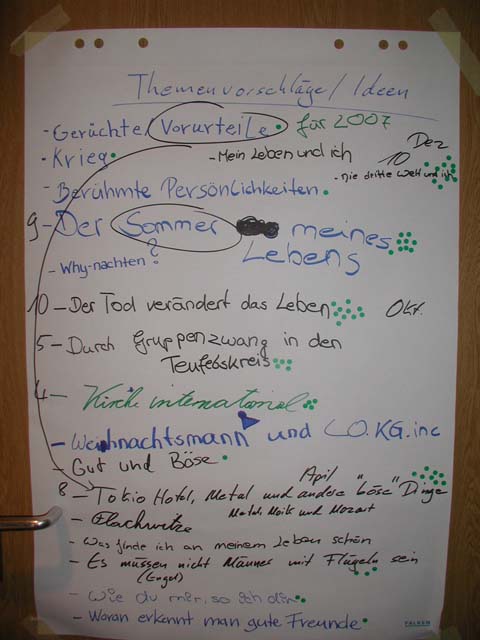 Themenvorschläge/Ideen
- Gerüchte/Vorurteile für 2007
- Krieg - Mein Leben und ich 10 Dez
- Berühmte Persönlichkeiten - die dritte Welt und ich
9 - Der Sommer meines
Lebens
- Why-nachten?
10 - Der Tod verändert das Leben Okt.
5 - Durch Gruppenzwang in den
Teufelskreis
4 - Kirche international
- Weihnachtsmann und CO.KG.inc
- Gut und Böse
April
8 - Tokio Hotel, Metal und andere "böse" Dinge
- Flachwitze Metal, Moik und Mozart
- Was finde ich an meinem Leben schön
- Es müssen nicht Männer mit Flügeln sein
(Engel)
- Wie du mir, so ich dir
- Woran erkennt man gute Freunde
FALKEN